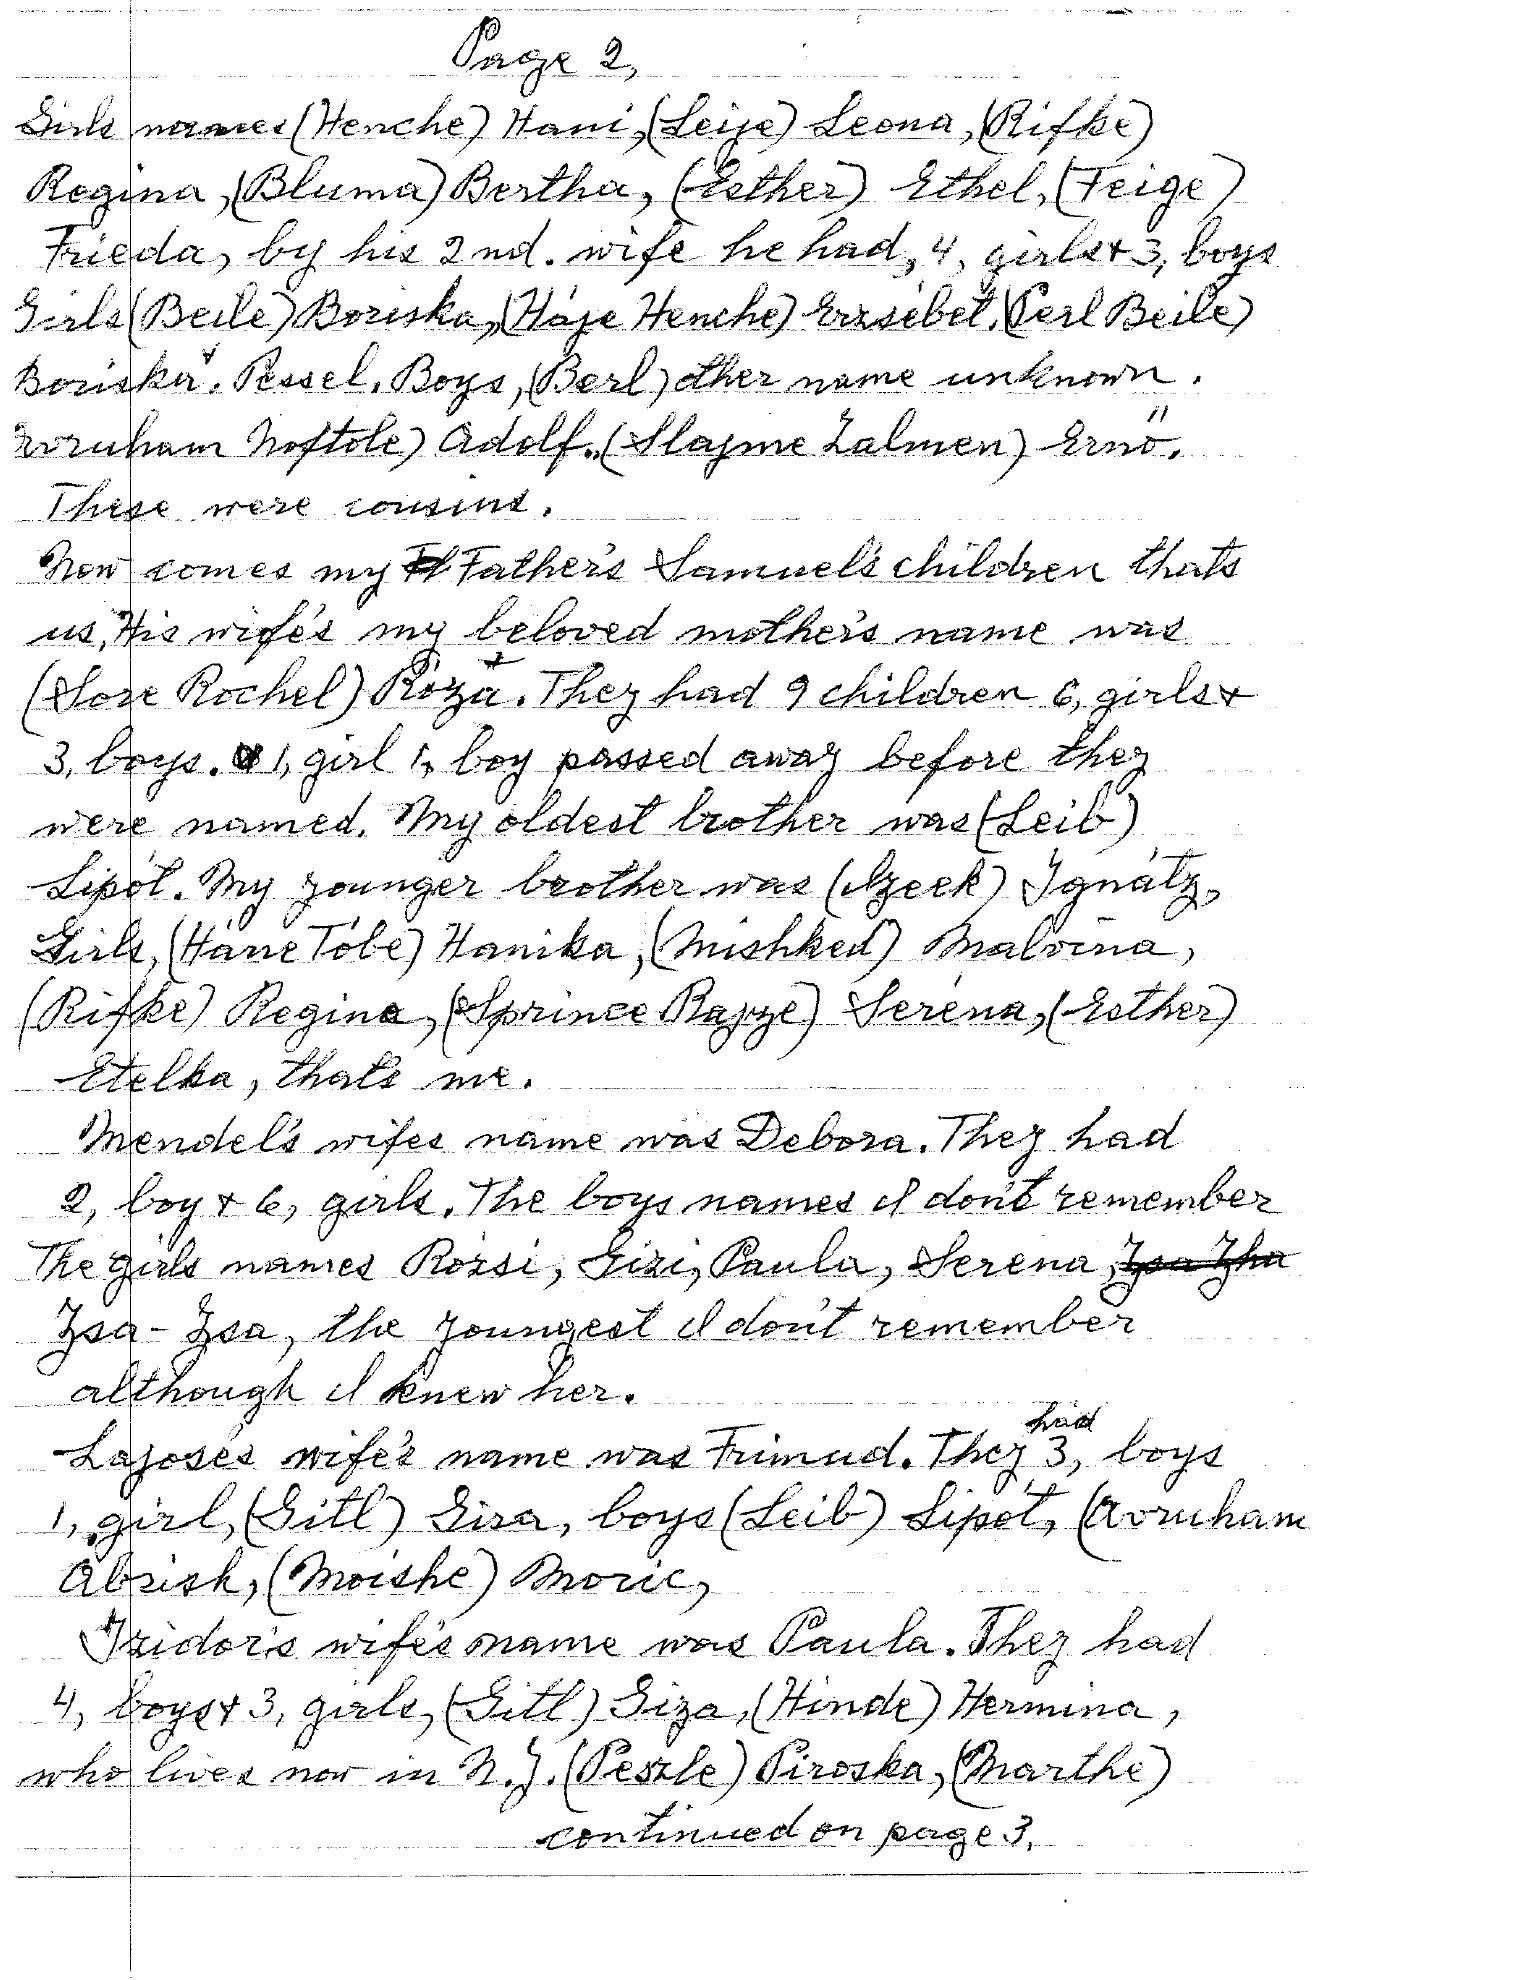 Page 2,
Girls names (Henche) Hani, (Leije) Leona, (Rifke)
Regina, (Bluma) Bertha, (Esther) Ethel, (Feige)
Frieda, by his 2nd. wife he had, 4, girls & 3, boys
Girls (Beile) Boriska, (Háje Henche) Erzsébet, (Perl Beile)
Boriska. Pessel. Boys, (Berl) other name unknown.
Avruham Noftole) Adolf., (Slajme Zalmen) Ernő.
These were cousins.
Now comes my Father's Samuel's children thats
us, His wife's my beloved mother's name was
(Sore Rochel) Róza. They had 9 children 6, girls &
3, boys. 1, girl 1, boy passed away before they
were named. My oldest brother was (Leib)
Lipót. My younger brother was (Izeek) Ignátz,
Girls, (Háne Tóbe) Hanika, (Mishked) Malvina,
(Rifke) Regina, (Sprince Rajze) Seréna, (Esther)
Etelka, that's me.
Mendel's wifes name was Debora. They had
2, boy & 6, girls. The boys names I don't remember
The girls names Rózsi, Gizi, Paula, Serena, Zsa Zha
Zsa-Zsa, the youngest I don't remember
although I knew her.
Lajose's wife's name was Frimud. They had 3, boys
1, girl, (Gitl) Giza, boys (Leib) Lipót, (Avruham
Abrish, (Moishe) Moric,
Izidor's wife's name was Paula. They had
4, boys & 3, girls, (Gitl) Giza, (Hinde) Hermina,
who lives now in N.J. (Peszle) Piroska, (Marthe)
continued on page 3.